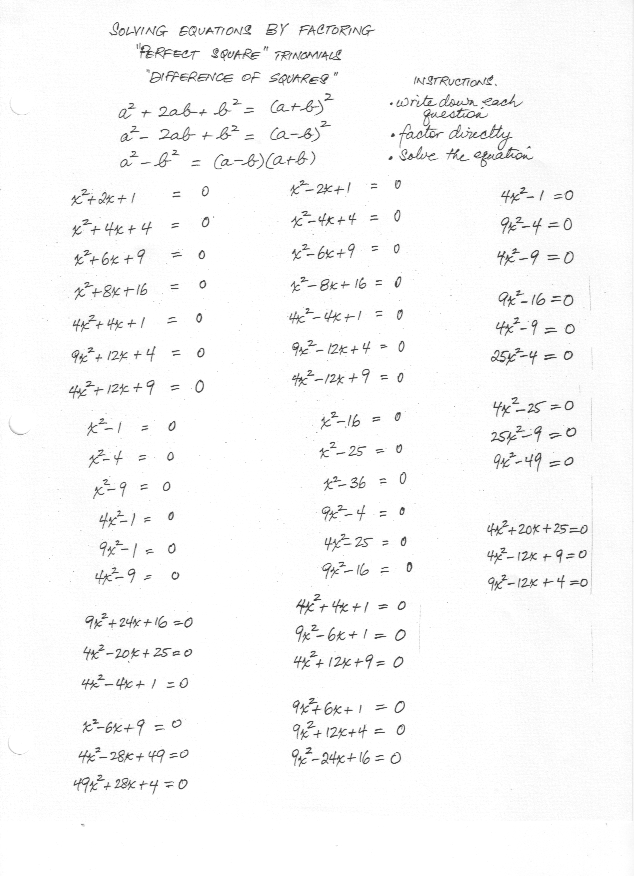 SOLVING EQUATIONS BY FACTORING
"PERFECT SQUARE" TRINOMIALS
"DIFFERENCE OF SQUARES"
a² + 2ab + b² = (a+b)²
a² - 2ab + b² = (a-b)²
a² - b² = (a-b)(a+b)
INSTRUCTIONS.
• write down each
question
• factor directly
• solve the equation
x²+2x+1 = 0
x²+4x+4 = 0
x²+6x+9 = 0
x²+8x+16 = 0
4x²+4x+1 = 0
9x²+12x+4 = 0
4x²+12x+9 = 0
x²-1 = 0
x²-4 = 0
x²-9 = 0
4x²-1 = 0
9x²-1 = 0
4x²-9 = 0
9x²+24x+16=0
4x²-20x+25=0
4x²-4x+1=0
x²-6x+9=0
4x²-28x+49=0
49x²+28x+4=0
x²-2x+1 = 0
x²-4x+4 = 0
x²-6x+9 = 0
x²-8x+16 = 0
4x²-4x+1 = 0
9x²-12x+4 = 0
4x²-12x+9 = 0
x²-16 = 0
x²-25 = 0
x²-36 = 0
9x²-4 = 0
4x²-25 = 0
9x²-16 = 0
4x²+4x+1 = 0
9x²-6x+1 = 0
4x²+12x+9=0
9x²+6x+1 = 0
9x²+12x+4 = 0
9x²-24x+16=0
4x²-1=0
9x²-4=0
4x²-9=0
9x²-16=0
4x²-9=0
25x²-4=0
4x²-25=0
25x²-9=0
9x²-49=0
4x²+20x+25=0
4x²-12x+9=0
9x²-12x+4=0